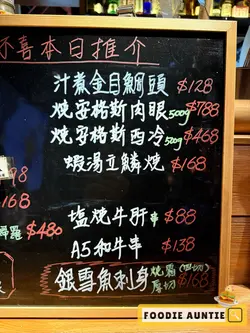 杯喜本日推介
汁煮金目鯛頭 $128
燒安格斯肉眼500g $788
燒安格斯西冷500g $468
蝦湯立鱗燒 $168
168
$480
塩燒牛肝串 $88
A5和牛串 $138
銀雪魚刺身 厚切 $168
FOODIE AUNTIE